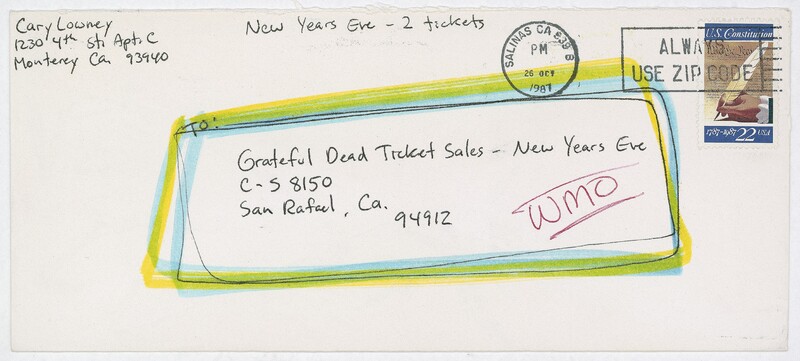 Cary Lowney
1230 4th St. Apt. C
Monterey Ca. 93940
New Years Eve - 2 tickets
SALINAS CA 939 B
PM
26 OCT
1987
ALWAYS
USE ZIP CODE
U.S. Constitution
1787-1987 22 USA
TO:
Grateful Dead Ticket Sales - New Years Eve
C-S 8150
San Rafael, Ca.
94912
WMO